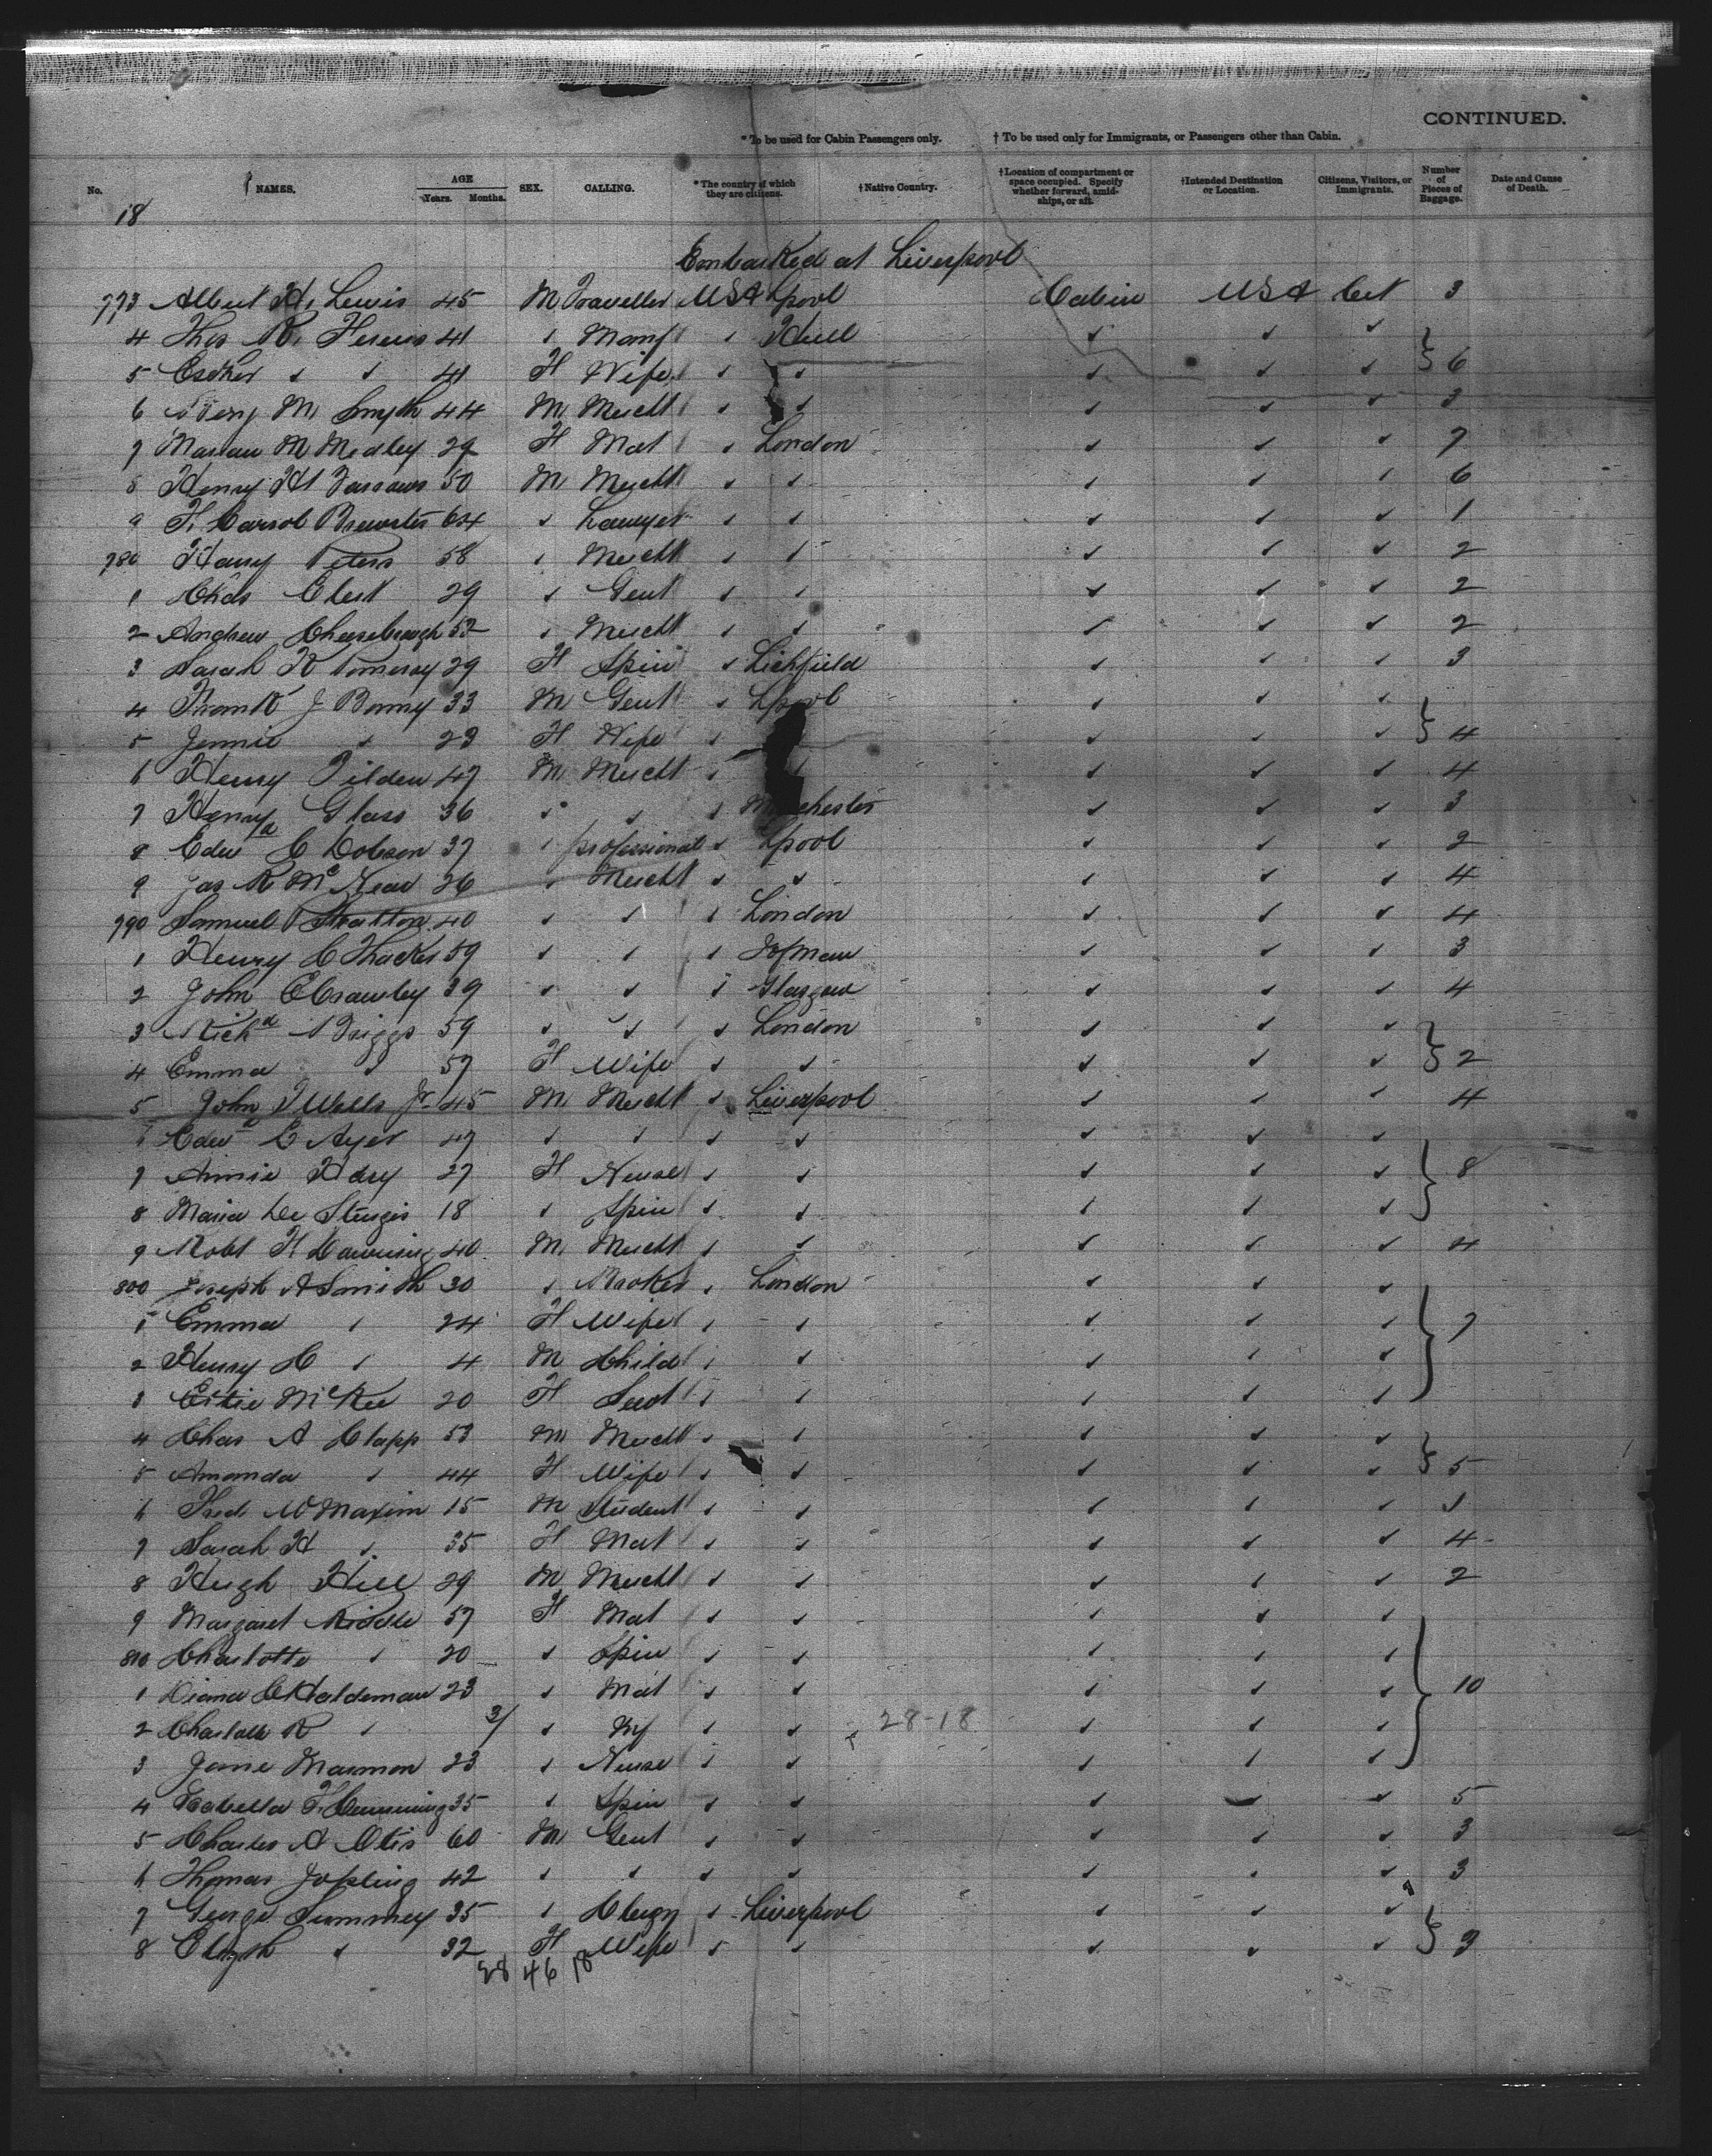 CONTINUED.
* To be used for Cabin Passengers only. † To be used only for Immigrants, or Passengers other than Cabin.
No. NAMES. AGE Years. Months. SEX. CALLING. * The country of which they are citizens. † Native Country. † Location of compartment or space occupied. Specify whether forward, amidships, or aft. † Intended Destination or Location. Citizens, Visitors, or Immigrants. Number of Pieces of Baggage. Date and Cause of Death.
18
Embarked at Liverpool
773 Albert H. Lewis 45 M Traveller USA Lpool Cabin USA Cit 3
4 Thos R. 41 ✓ Manf ✓ Hull ✓ ✓ ✓
5 Esther ✓ ✓ 41 F Wife ✓ ✓ ✓ ✓ ✓ 6
6 Benj M. Smyth 44 M Mercht ✓ ✓ ✓ ✓ ✓ 3
7 M Medley 29 F Mat ✓ London ✓ ✓ ✓ 7
8 Henry H 50 M Mercht ✓ ✓ ✓ ✓ ✓ 6
9 F. Carrol Brewster 64 ✓ Lawyer ✓ ✓ ✓ ✓ ✓ 1
780 Harry Peters 58 ✓ Mercht ✓ ✓ ✓ ✓ ✓ 2
1 Chas 29 ✓ Gent ✓ ✓ ✓ ✓ ✓ 2
2 Andrew Cheesebrough 52 ✓ Mercht ✓ ✓ ✓ ✓ ✓ 2
3 Sarah K Pomeroy 29 F Spin ✓ Lichfield ✓ ✓ ✓ 3
4 Frank J Bonny 33 M Gent ✓ Lpool ✓ ✓ ✓
5 Jennie ✓ 23 F Wife ✓ ✓ ✓ ✓ 4
6 Henry Tilden 47 M Mercht ✓ ✓ ✓ ✓ ✓ 4
7 Henry Glass 36 ✓ ✓ ✓ Manchester ✓ ✓ ✓ 3
8 Edwd C Dobson 37 ✓ professional ✓ Lpool ✓ ✓ ✓ 2
9 Jas R McNear 26 ✓ Mercht ✓ ✓ ✓ ✓ ✓ 4
790 Samuel Stratton 40 ✓ ✓ ✓ London ✓ ✓ ✓ 4
1 Henry C Thacker 59 ✓ ✓ ✓ IofMan ✓ ✓ ✓ 3
2 John E Crawley 39 ✓ ✓ ✓ Glasgow ✓ ✓ ✓ 4
3 Richd Briggs 59 ✓ ✓ ✓ London ✓ ✓ ✓
4 Emma ✓ 57 F Wife ✓ ✓ ✓ ✓ ✓ 2
5 John J Wells Jr 45 M Mercht ✓ Liverpool ✓ ✓ ✓ 4
6 Edwd E Ayer 47 ✓ ✓ ✓ ✓ ✓ ✓ ✓
7 Annie 27 F Nurse ✓ ✓ ✓ ✓ ✓ 8
8 Maria De Sturgis 18 ✓ Spin ✓ ✓ ✓ ✓ ✓
9 Robt H 40 M Mercht ✓ ✓ ✓ ✓ ✓ 4
800 Joseph A Smith 30 ✓ Broker ✓ London ✓ ✓ ✓
1 Emma ✓ 24 F Wife ✓ ✓ ✓ ✓ ✓ 7
2 Henry C ✓ 4 M Child ✓ ✓ ✓ ✓ ✓
3 McKee 20 F Servt ✓ ✓ ✓ ✓ ✓
4 Chas A Clapp 53 M Mercht ✓ ✓ ✓ ✓ ✓
5 Amanda ✓ 44 F Wife ✓ ✓ ✓ ✓ ✓ 5
6 Fred W Maxim 15 M Student ✓ ✓ ✓ ✓ ✓ 1
7 Sarah H ✓ 35 F Mat ✓ ✓ ✓ ✓ ✓ 4
8 Hugh Hill 29 M Mercht ✓ ✓ ✓ ✓ ✓ 2
9 Margaret Riddle 57 F Mat ✓ ✓ ✓ ✓ ✓
810 Charlotte ✓ 20 ✓ Spin ✓ ✓ ✓ ✓ ✓
1 Diana C Haldeman 23 ✓ Mat ✓ ✓ ✓ ✓ ✓ 10
2 Charlotte R ✓ 3/ ✓ Inf ✓ ✓ 28-18 ✓ ✓ ✓
3 Jane Marmon 23 ✓ Nurse ✓ ✓ ✓ ✓ ✓
4 Isabella F. 35 ✓ Spin ✓ ✓ ✓ ✓ ✓ 5
5 Charles A Otis 60 M Gent ✓ ✓ ✓ ✓ ✓ 3
6 Thomas Jopling 42 ✓ ✓ ✓ ✓ ✓ ✓ ✓ 3
7 George Summey 35 ✓ Clergy ✓ Liverpool ✓ ✓ ✓
8 Elizth ✓ 32 F Wife ✓ ✓ ✓ ✓ ✓ 3
28 46 18